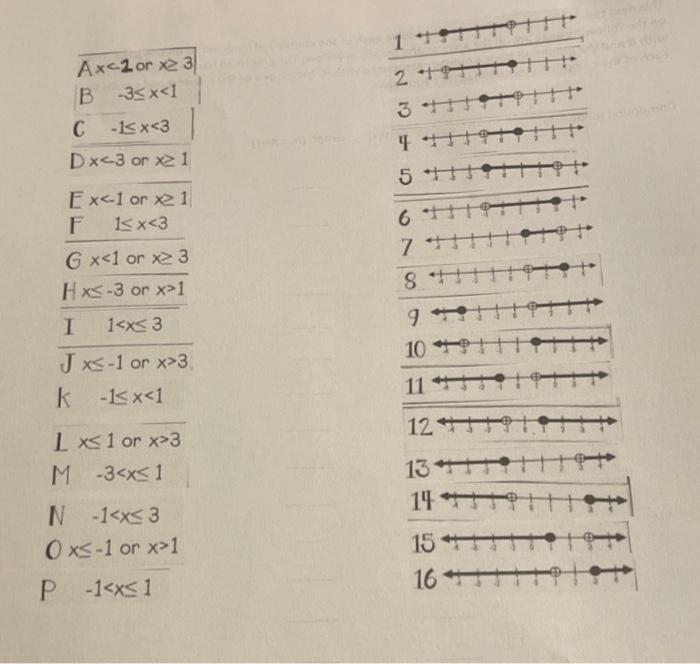 A x<-1 or x≥ 3
B -3≤ x<1
C -1≤ x<3
D x<-3 or x≥ 1
E x<-1 or x≥ 1
F 1≤ x<3
G x<1 or x≥ 3
H x≤ -3 or x>1
I 1<x≤ 3
J x≤ -1 or x>3
K -1≤ x<1
L x≤ 1 or x>3
M -3<x≤ 1
N -1<x≤ 3
O x≤ -1 or x>1
P -1<x≤ 1
1
2
3
4
5
6
7
8
9
10
11
12
13
14
15
16